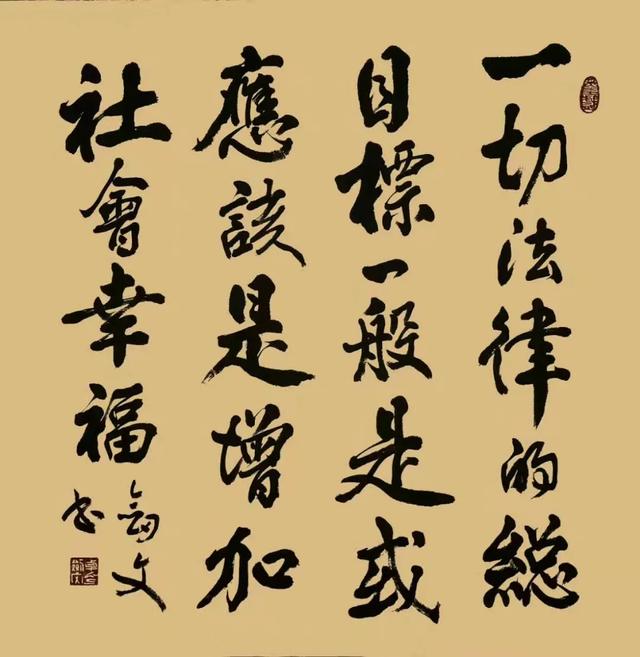 一切法律的総
目標一般是或
應該是增加
社會幸福
劍文
书